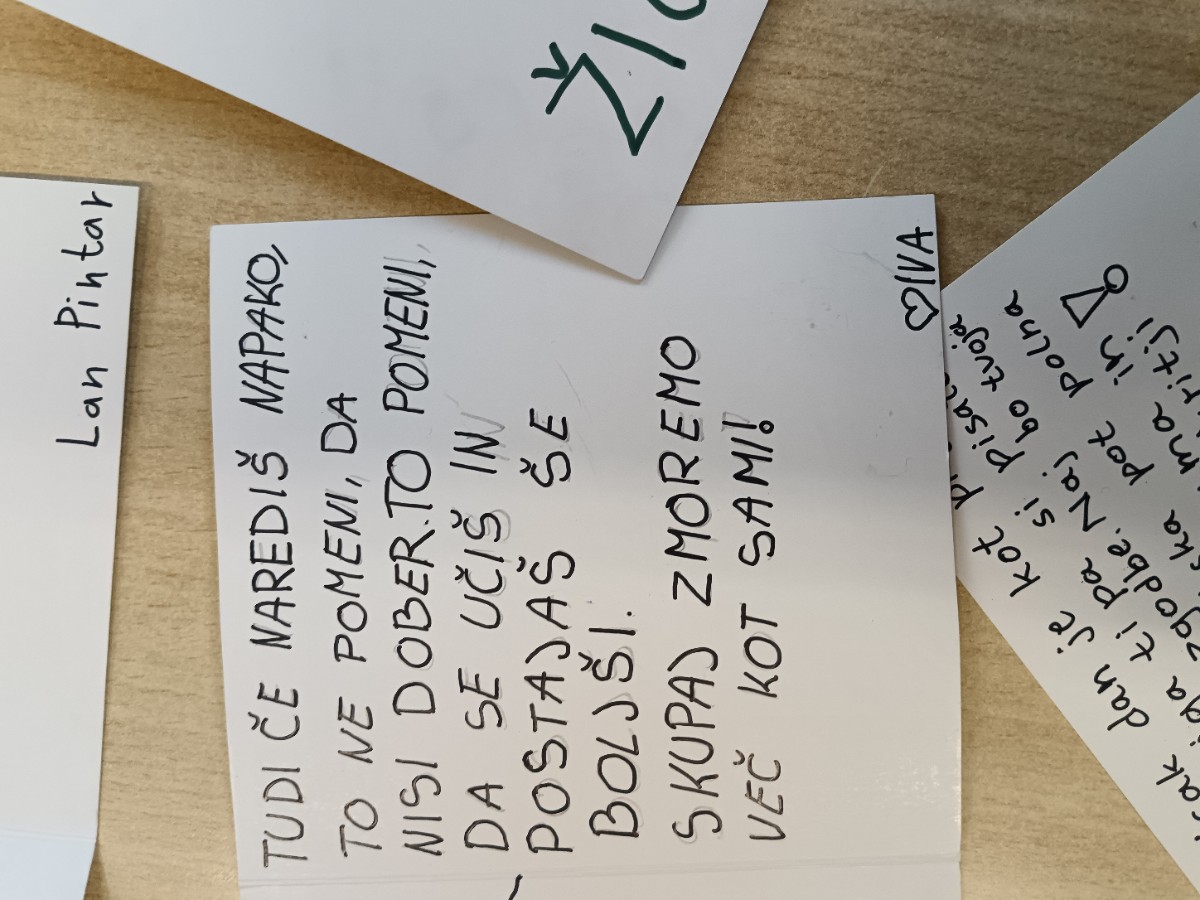 Lan Pintar
TUDI ČE NAREDIŠ NAPAKO,
TO NE POMENI, DA
NISI DOBER. TO POMENI,
DA SE UČIŠ IN
POSTAJAŠ ŠE
BOLJŠI.
SKUPAJ ZMOREMO
VEČ KOT SAMI!
♡IVA
dan je kot
ti pa si
zgodbe. Naj bo tvoja
pot polna
in